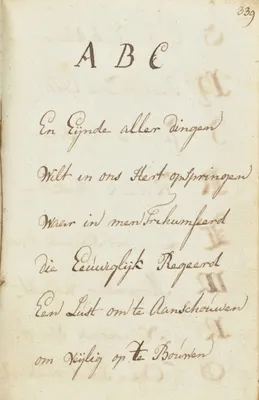 339
A B C
En Eijnde aller Dingen
Wilt in ons Hert opspringen
Waar in men Trihumfeerd
die Eeuwiglijk Regeerd
Een Lust om te Aanschouwen
om Veijlig op te Bouwen